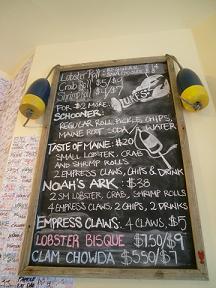 Lobster Roll
Crab Roll $5/$9
Shrimp Roll $4/$7
LUKE'S
FOR $2 MORE..
SCHOONER:
REGULAR ROLL, PICKLE, CHIPS,
MAINE ROOT SODA WATER
TASTE OF MAINE: $20
SMALL LOBSTER, CRAB
AND SHRIMP ROLLS
2 EMPRESS CLAWS, CHIPS & DRINK
NOAH'S ARK: $38
2 SM LOBSTER, CRAB, SHRIMP ROLLS
4 EMPRESS CLAWS, 2 CHIPS, 2 DRINKS
EMPRESS CLAWS: 4 CLAWS, $5
LOBSTER BISQUE $7.50/$9
CLAM CHOWDA $5.50/$7